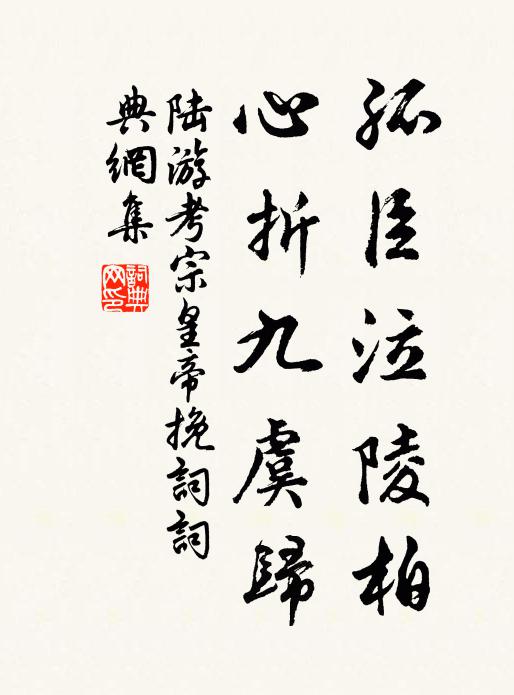 孤臣泣陵柏
心折九虞歸
陸游考宗皇帝挽詞詞
典網集
詞典網印